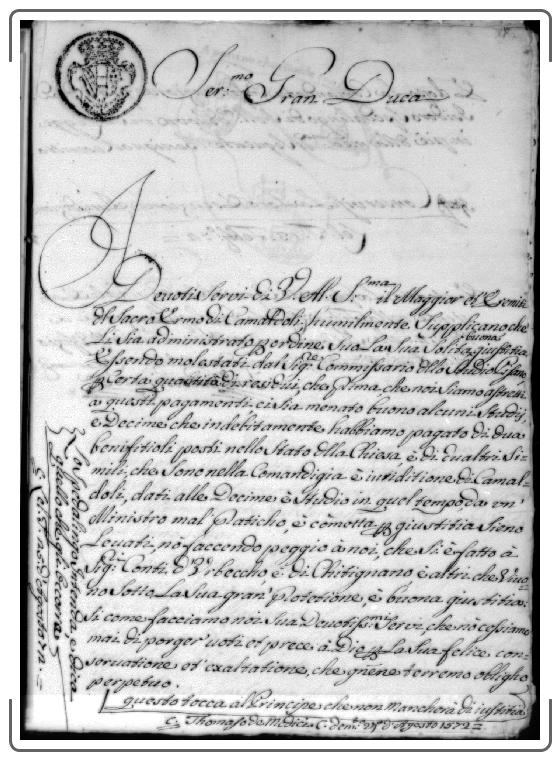 Ser:mo Gran Duca
Devoti Servi di V. Al. S.ma il Maggior et Eremiti
dl Sacro Ermo di Camaldoli, humilmente Supplicano che
li sia administrato p ordine Sua La Sua Solita buona giustitia
Essendo molestati dal Sig.re Commissario dllo Studio Pisano
p certa quantità di residui, che prima che noi siamo astretti
a questi pagamenti ci sia menato buono alcuni Studij
e Decime che indebitamente habbiamo pagato di dua
benifitioli posti nello Stato dlla Chiesa è di dua altri Si-
mili, che Sono nella Comandigia è iuriditione di Camal-
doli, dati alle Decime è Studio in quel tempo da un'
Ministro mal' Paticho, è cometta p giustitia Sieno
Levati, nò facendo peggio à noi, che Si è fatto à
Sig.ri Conti d è di Chitignano è altri che Vivo-
no Sotto La Sua gran' Protetione, è buona giustitia:
Si come facciamo noi Sua Devotiss.mi Servi, che nò cessiamo
mai di porger' voti et prece à Dio p La Sua felice con-
servatione et' exaltatione, che gnene terremo obligho
perpetuo.
questo tocca al Principe che non Mancherà di iustitia
Thomaso de Medici C. dem.to 25 d'Agosto 1572